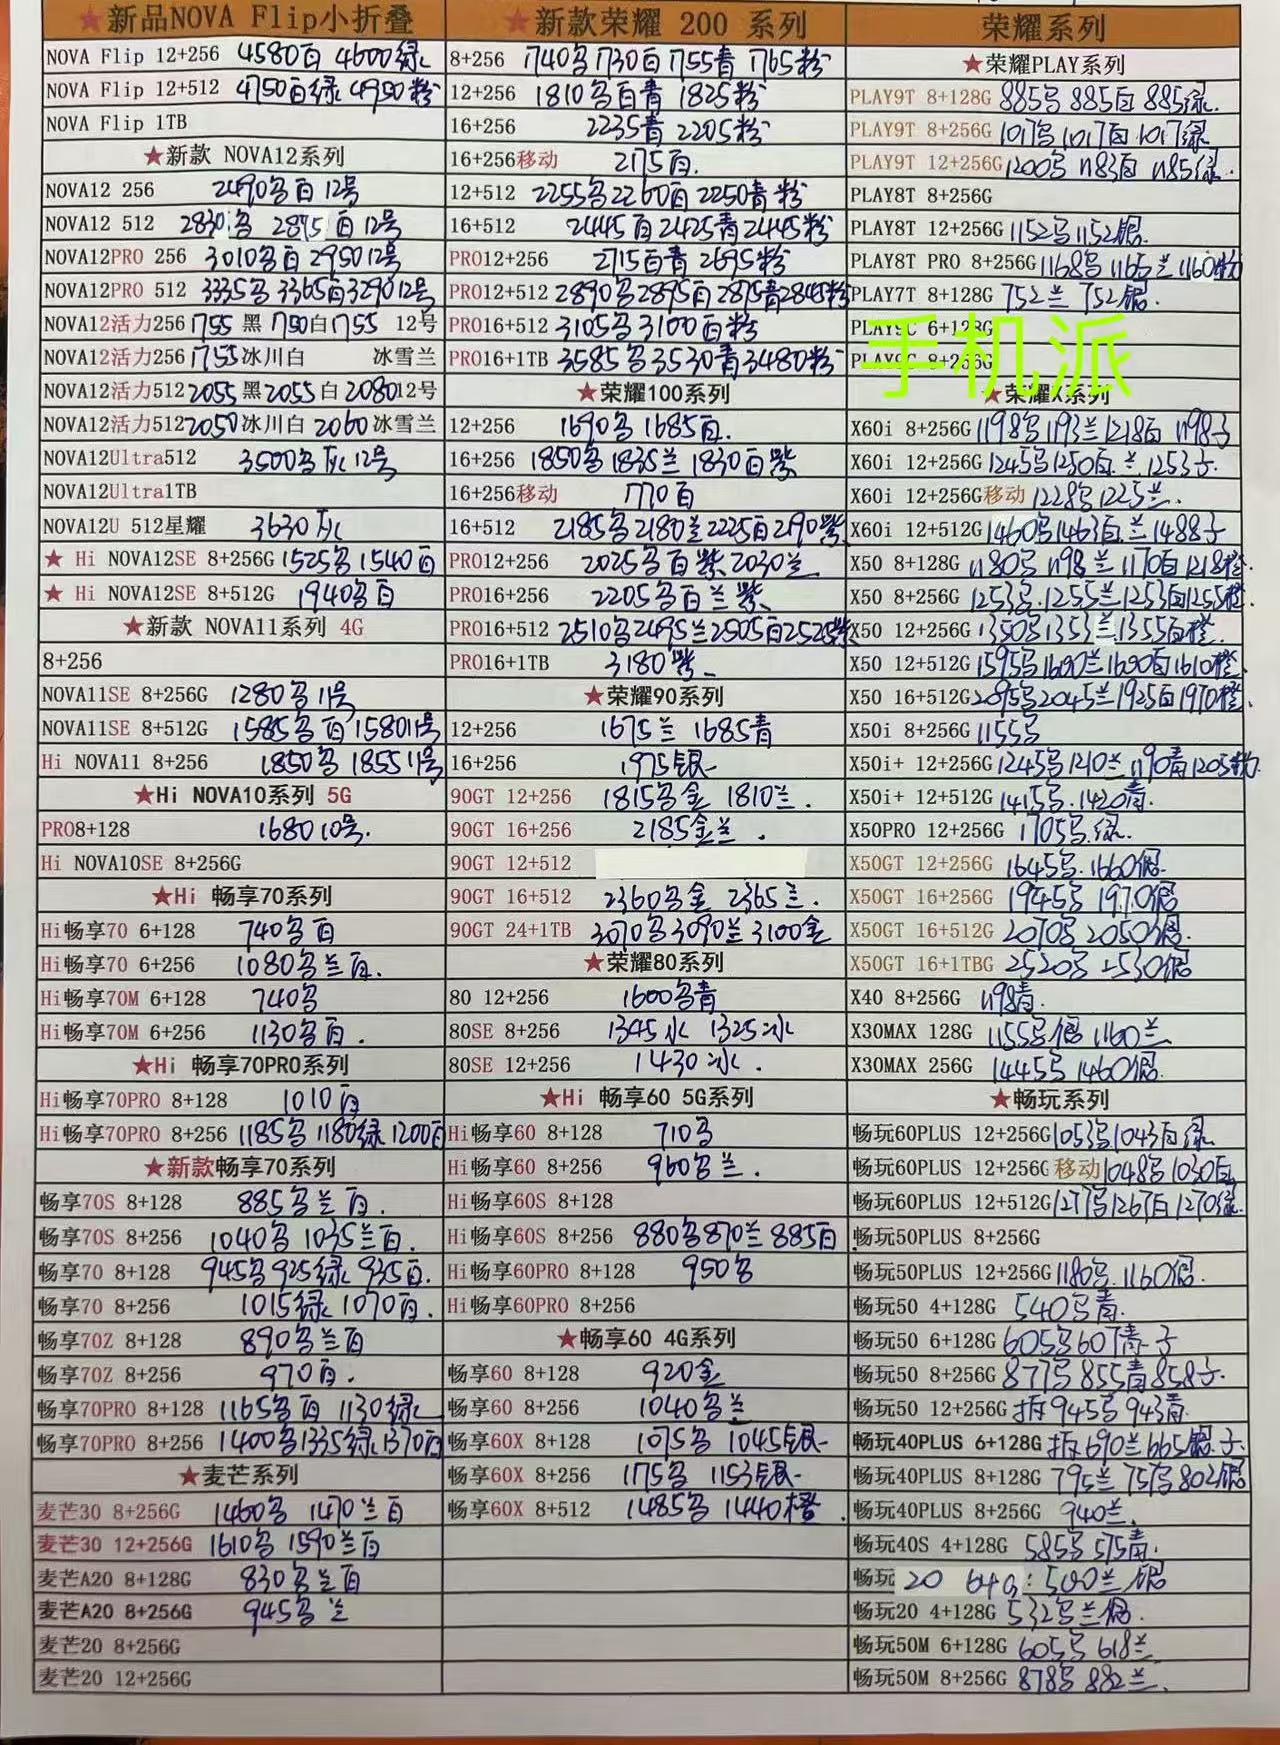 ★新品NOVA Flip小折叠
NOVA Flip 12+256 4580白 4600绿
NOVA Flip 12+512 4750白绿 4950粉
NOVA Flip 1TB
★新款 NOVA12系列
NOVA12 256 2490白 12号
NOVA12 512 2830 2895白 12号
NOVA12PRO 256 3010白 2950 12号
NOVA12PRO 512 3335 3365白 3290 12号
NOVA12活力256 1755 黑 1750白 1755 12号
NOVA12活力256 1755 冰川白 冰雪兰
NOVA12活力512 2055 黑 2055 白 2080 12号
NOVA12活力512 2050 冰川白 2060 冰雪兰
NOVA12Ultra512 3500 灰 12号
NOVA12Ultra1TB
NOVA12U 512星耀 3630灰
★ Hi NOVA12SE 8+256G 1525 1540白
★ Hi NOVA12SE 8+512G 1940白
★新款 NOVA11系列 4G
8+256
NOVA11SE 8+256G 1280 11号
NOVA11SE 8+512G 1585白 1580 11号
Hi NOVA11 8+256 1850 1855 11号
★Hi NOVA10系列 5G
PRO8+128 1680 10号.
Hi NOVA10SE 8+256G
★Hi 畅享70系列
Hi畅享70 6+128 740白
Hi畅享70 6+256 1080兰白.
Hi畅享70M 6+128 740
Hi畅享70M 6+256 1130白.
★Hi 畅享70PRO系列
Hi畅享70PRO 8+128 1010白
Hi畅享70PRO 8+256 1185 1180绿 1200白
★新款畅享70系列
畅享70S 8+128 885兰白.
畅享70S 8+256 1040 1035兰白.
畅享70 8+128 945 925绿 935白.
畅享70 8+256 1015绿 1070白.
畅享70Z 8+128 890兰白
畅享70Z 8+256 970白.
畅享70PRO 8+128 1165白 1130绿
畅享70PRO 8+256 1400 1335绿 1370白
★麦芒系列
麦芒30 8+256G 1460 1470兰白
麦芒30 12+256G 1610 1590兰白
麦芒A20 8+128G 830兰白
麦芒A20 8+256G 945兰
麦芒20 8+256G
麦芒20 12+256G
★新款荣耀 200 系列
8+256 1740 1730白 1755青 1765粉
12+256 1810白青 1825粉
16+256 2235青 2205粉
16+256移动 2175白.
12+512 2255 2260白 2250青粉
16+512 2445白 2425青 2445粉
PRO12+256 2715白青 2695粉
PRO12+512 2890 2895白 2875青 2845粉
PRO16+512 3105 3100白粉
PRO16+1TB 3585 3530青 3480粉
★荣耀100系列
12+256 1690 1685白.
16+256 1850 1835兰 1830白紫
16+256移动 1770白
16+512 2185 2180兰 2225白 2190紫
PRO12+256 2025白紫 2030兰
PRO16+256 2205白兰紫
PRO16+512 2510 2495兰 2505白 2525紫
PRO16+1TB 3180紫
★荣耀90系列
12+256 1675兰 1685青
16+256 1975银
90GT 12+256 1815金 1810兰.
90GT 16+256 2185金兰.
90GT 12+512
90GT 16+512 2360金 2365兰.
90GT 24+1TB 3070 3090兰 3100金
★荣耀80系列
80 12+256 1600青
80SE 8+256 1345水 1325冰
80SE 12+256 1430冰.
★Hi 畅享60 5G系列
Hi畅享60 8+128 710
Hi畅享60 8+256 960兰.
Hi畅享60S 8+128
Hi畅享60S 8+256 880 870兰 885白.
Hi畅享60PRO 8+128 950
Hi畅享60PRO 8+256
★畅享60 4G系列
畅享60 8+128 920金
畅享60 8+256 1040兰
畅享60X 8+128 1075 1045银
畅享60X 8+256 1175 1153银
畅享60X 8+512 1485 1440橙.
荣耀系列
★荣耀PLAY系列
PLAY9T 8+128G 885 885白 885绿.
PLAY9T 8+256G 1017 1017白 1017绿
PLAY9T 12+256G 1200 1183白 1185绿.
PLAY8T 8+256G
PLAY8T 12+256G 1152 1152银.
PLAY8T PRO 8+256G 1168 1165兰 1160粉
PLAY7T 8+128G 752兰 752银.
PLAY9C 6+128G
PLAY9C 8+256G
手机派
★荣耀X系列
X60i 8+256G 1198 1193兰 1218白 1198子
X60i 12+256G 1245 1250白.兰 1253子.
X60i 12+256G移动 1228 1225兰.
X60i 12+512G 1460 1463白.兰 1488子
X50 8+128G 1180 1198兰 1170白 1218橙.
X50 8+256G 1253.1255兰 1253白 1255橙.
X50 12+256G 1350 1353兰 1355白橙.
X50 12+512G 1595 1600兰 1600白 1610橙.
X50 16+512G 2095 2045兰 1925白 1970橙.
X50i 8+256G 1155
X50i+ 12+256G 1245 1210兰 1190青 1205粉.
X50i+ 12+512G 1415.1420青.
X50PRO 12+256G 1705.绿.
X50GT 12+256G 1645.1660银.
X50GT 16+256G 1945 1970银
X50GT 16+512G 2070 2050银.
X50GT 16+1TBG 2520 2530银
X40 8+256G 1198青.
X30MAX 128G 1155银 1160兰
X30MAX 256G 1445 1460银.
★畅玩系列
畅玩60PLUS 12+256G 1053 1043白绿.
畅玩60PLUS 12+256G 移动 1048 1030白
畅玩60PLUS 12+512G 1277 1267白 1270绿.
畅玩50PLUS 8+256G
畅玩50PLUS 12+256G 1180.1160银.
畅玩50 4+128G 540青.
畅玩50 6+128G 605 607青子
畅玩50 8+256G 877 855青 858子.
畅玩50 12+256G 拆945 943青.
畅玩40PLUS 6+128G 拆690兰 665银.子.
畅玩40PLUS 8+128G 795兰 757 802银
畅玩40PLUS 8+256G 940兰.
畅玩40S 4+128G 585 575青.
畅玩 20 64G:500兰银
畅玩20 4+128G 532兰银.
畅玩50M 6+128G 605 618兰
畅玩50M 8+256G 878 882兰.